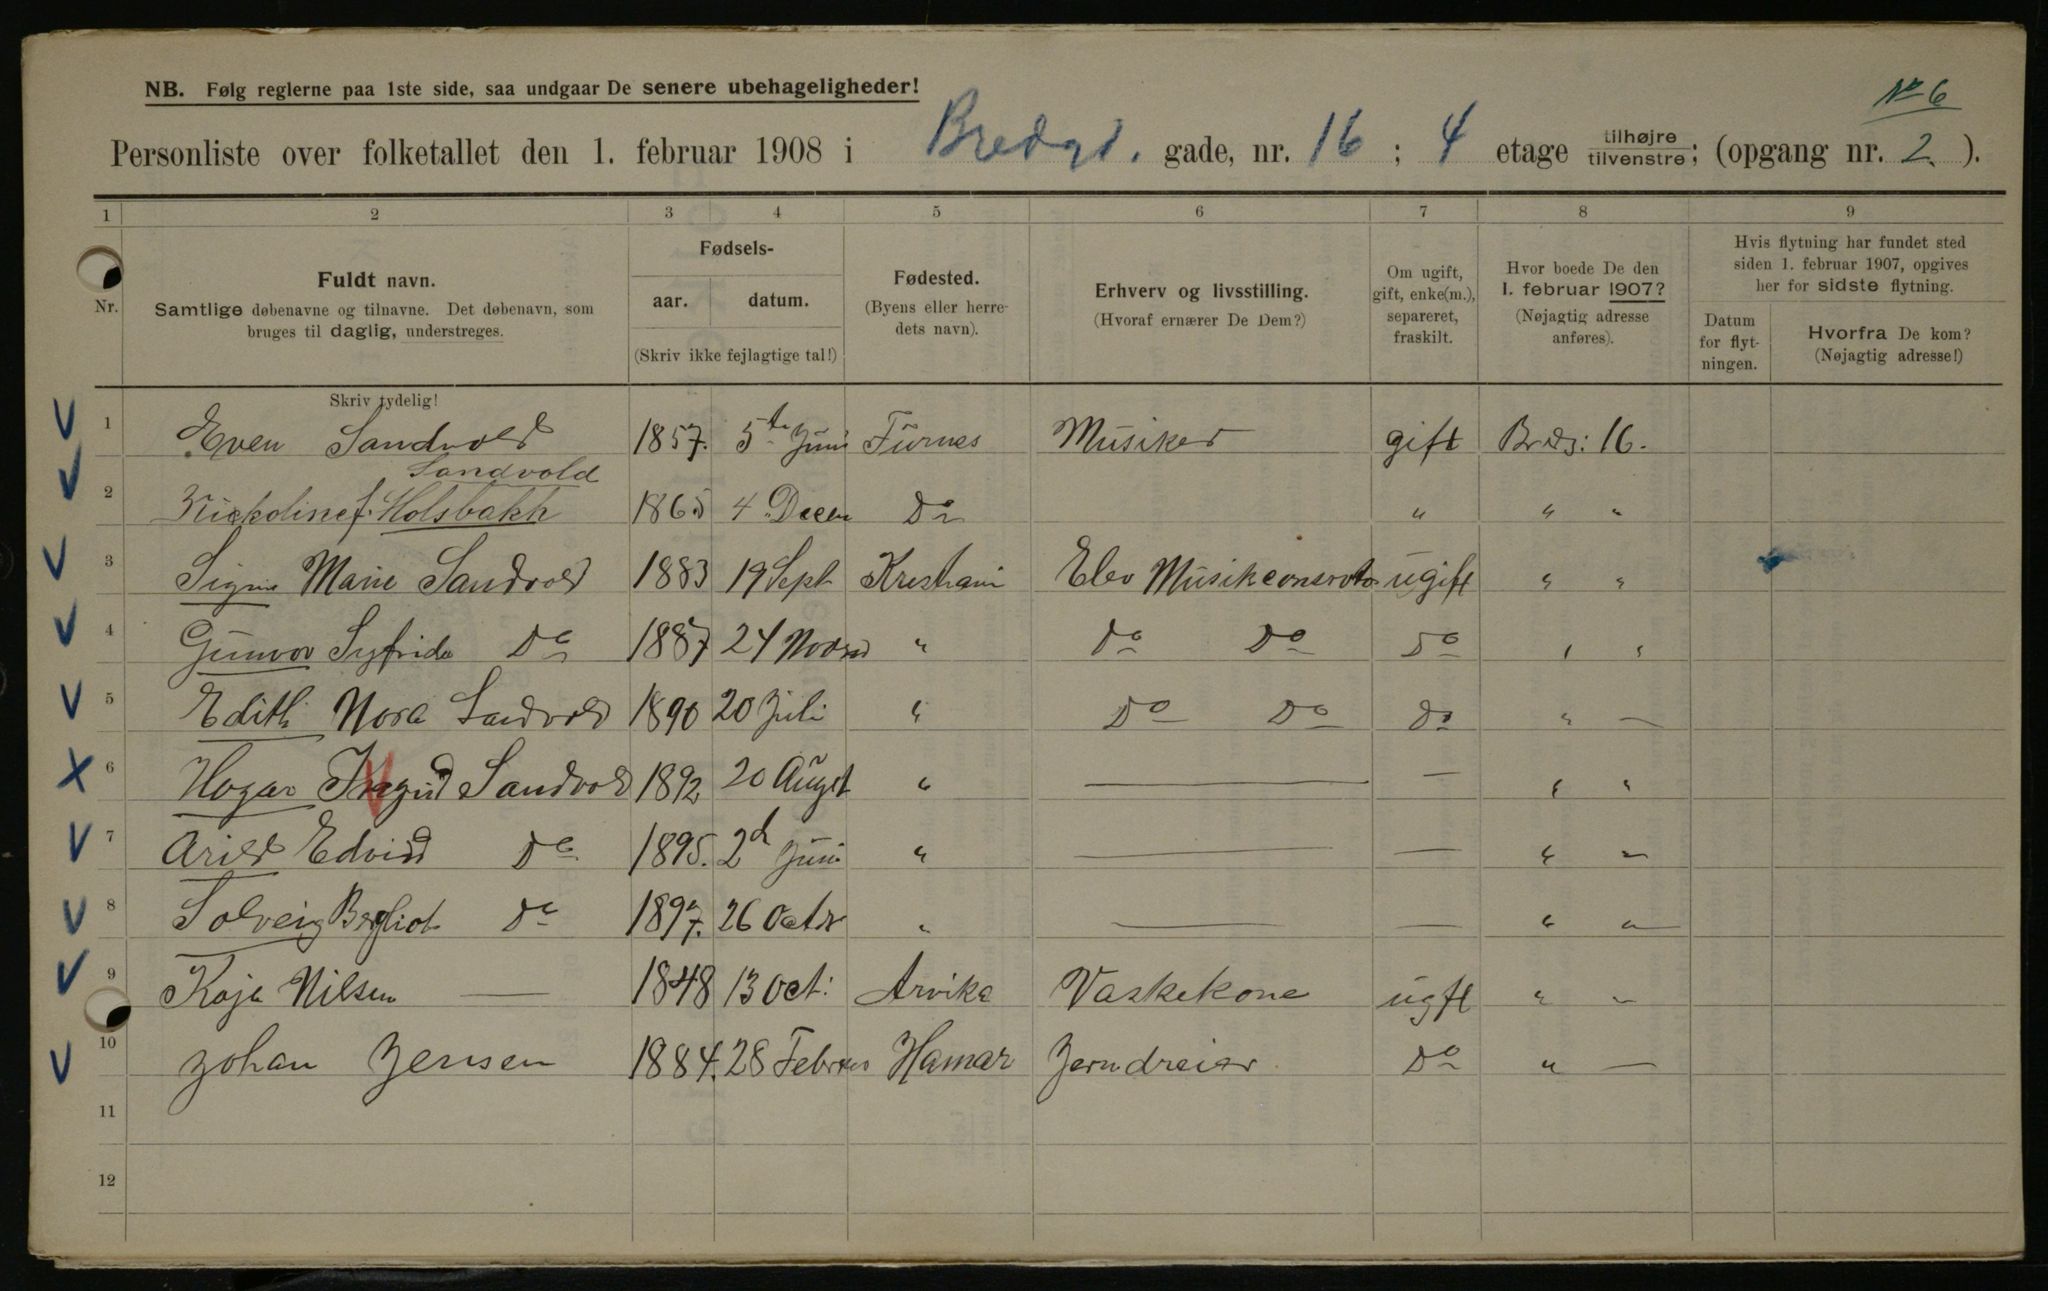 NB. Følg reglerne paa 1ste side, saa undgaar De senere ubehageligheder!
No 6
Personliste over folketallet den 1. februar 1908 i Bredgd. gade, nr. 16; 4 etage tilhøjre tilvenstre; (opgang nr. 2.).
1 2 3 4 5 6 7 8 9
Nr.
Fuldt navn.
Samtlige døbenavne og tilnavne. Det døbenavn, som
bruges til daglig, understreges.
Fødsels-
aar. datum.
(Skriv ikke fejlagtige tal!)
Fødested.
(Byens eller herre-
dets navn).
Erhverv og livsstilling.
(Hvoraf ernærer De Dem?)
Om ugift,
gift, enke(m.),
separeret,
fraskilt.
Hvor boede De den
1. februar 1907?
(Nøjagtig adresse
anføres).
Hvis flytning har fundet sted
siden 1. februar 1907, opgives
her for sidste flytning.
Datum
for flyt-
ningen.
Hvorfra De kom?
(Nøjagtig adresse!)
Skriv tydelig!
1 Even Sandvold 1857. 5te Juni Furnes Musiker gift Bredg: 16.
Sandvold
2 f. Holsbakh 1865 4. Decem Do " " "
3 Signe Marie Sandvold 1883 19 Sept Kristiani Elev Musikconservto ugift " "
4 Gunvor Syfrida Do 1887 24 Novem " Do Do Do " "
5 Edith Nora Sandvold 1890 20 Juli " Do Do Do " —
6 Hogar Sandvold 1892 20 Augst " — — " "
7 Arild Edvind Do 1895. 2d Juni " — — " "
8 Solveig Bergliot Do 1897. 26 Octbr " — — " "
9 Kaja Nilsen — 1848 13 Oct: Arvika Vaskekone ugft " "
10 Johan Jensen 1884. 28 Februar Hamar Jerndreier Do " —
11
12